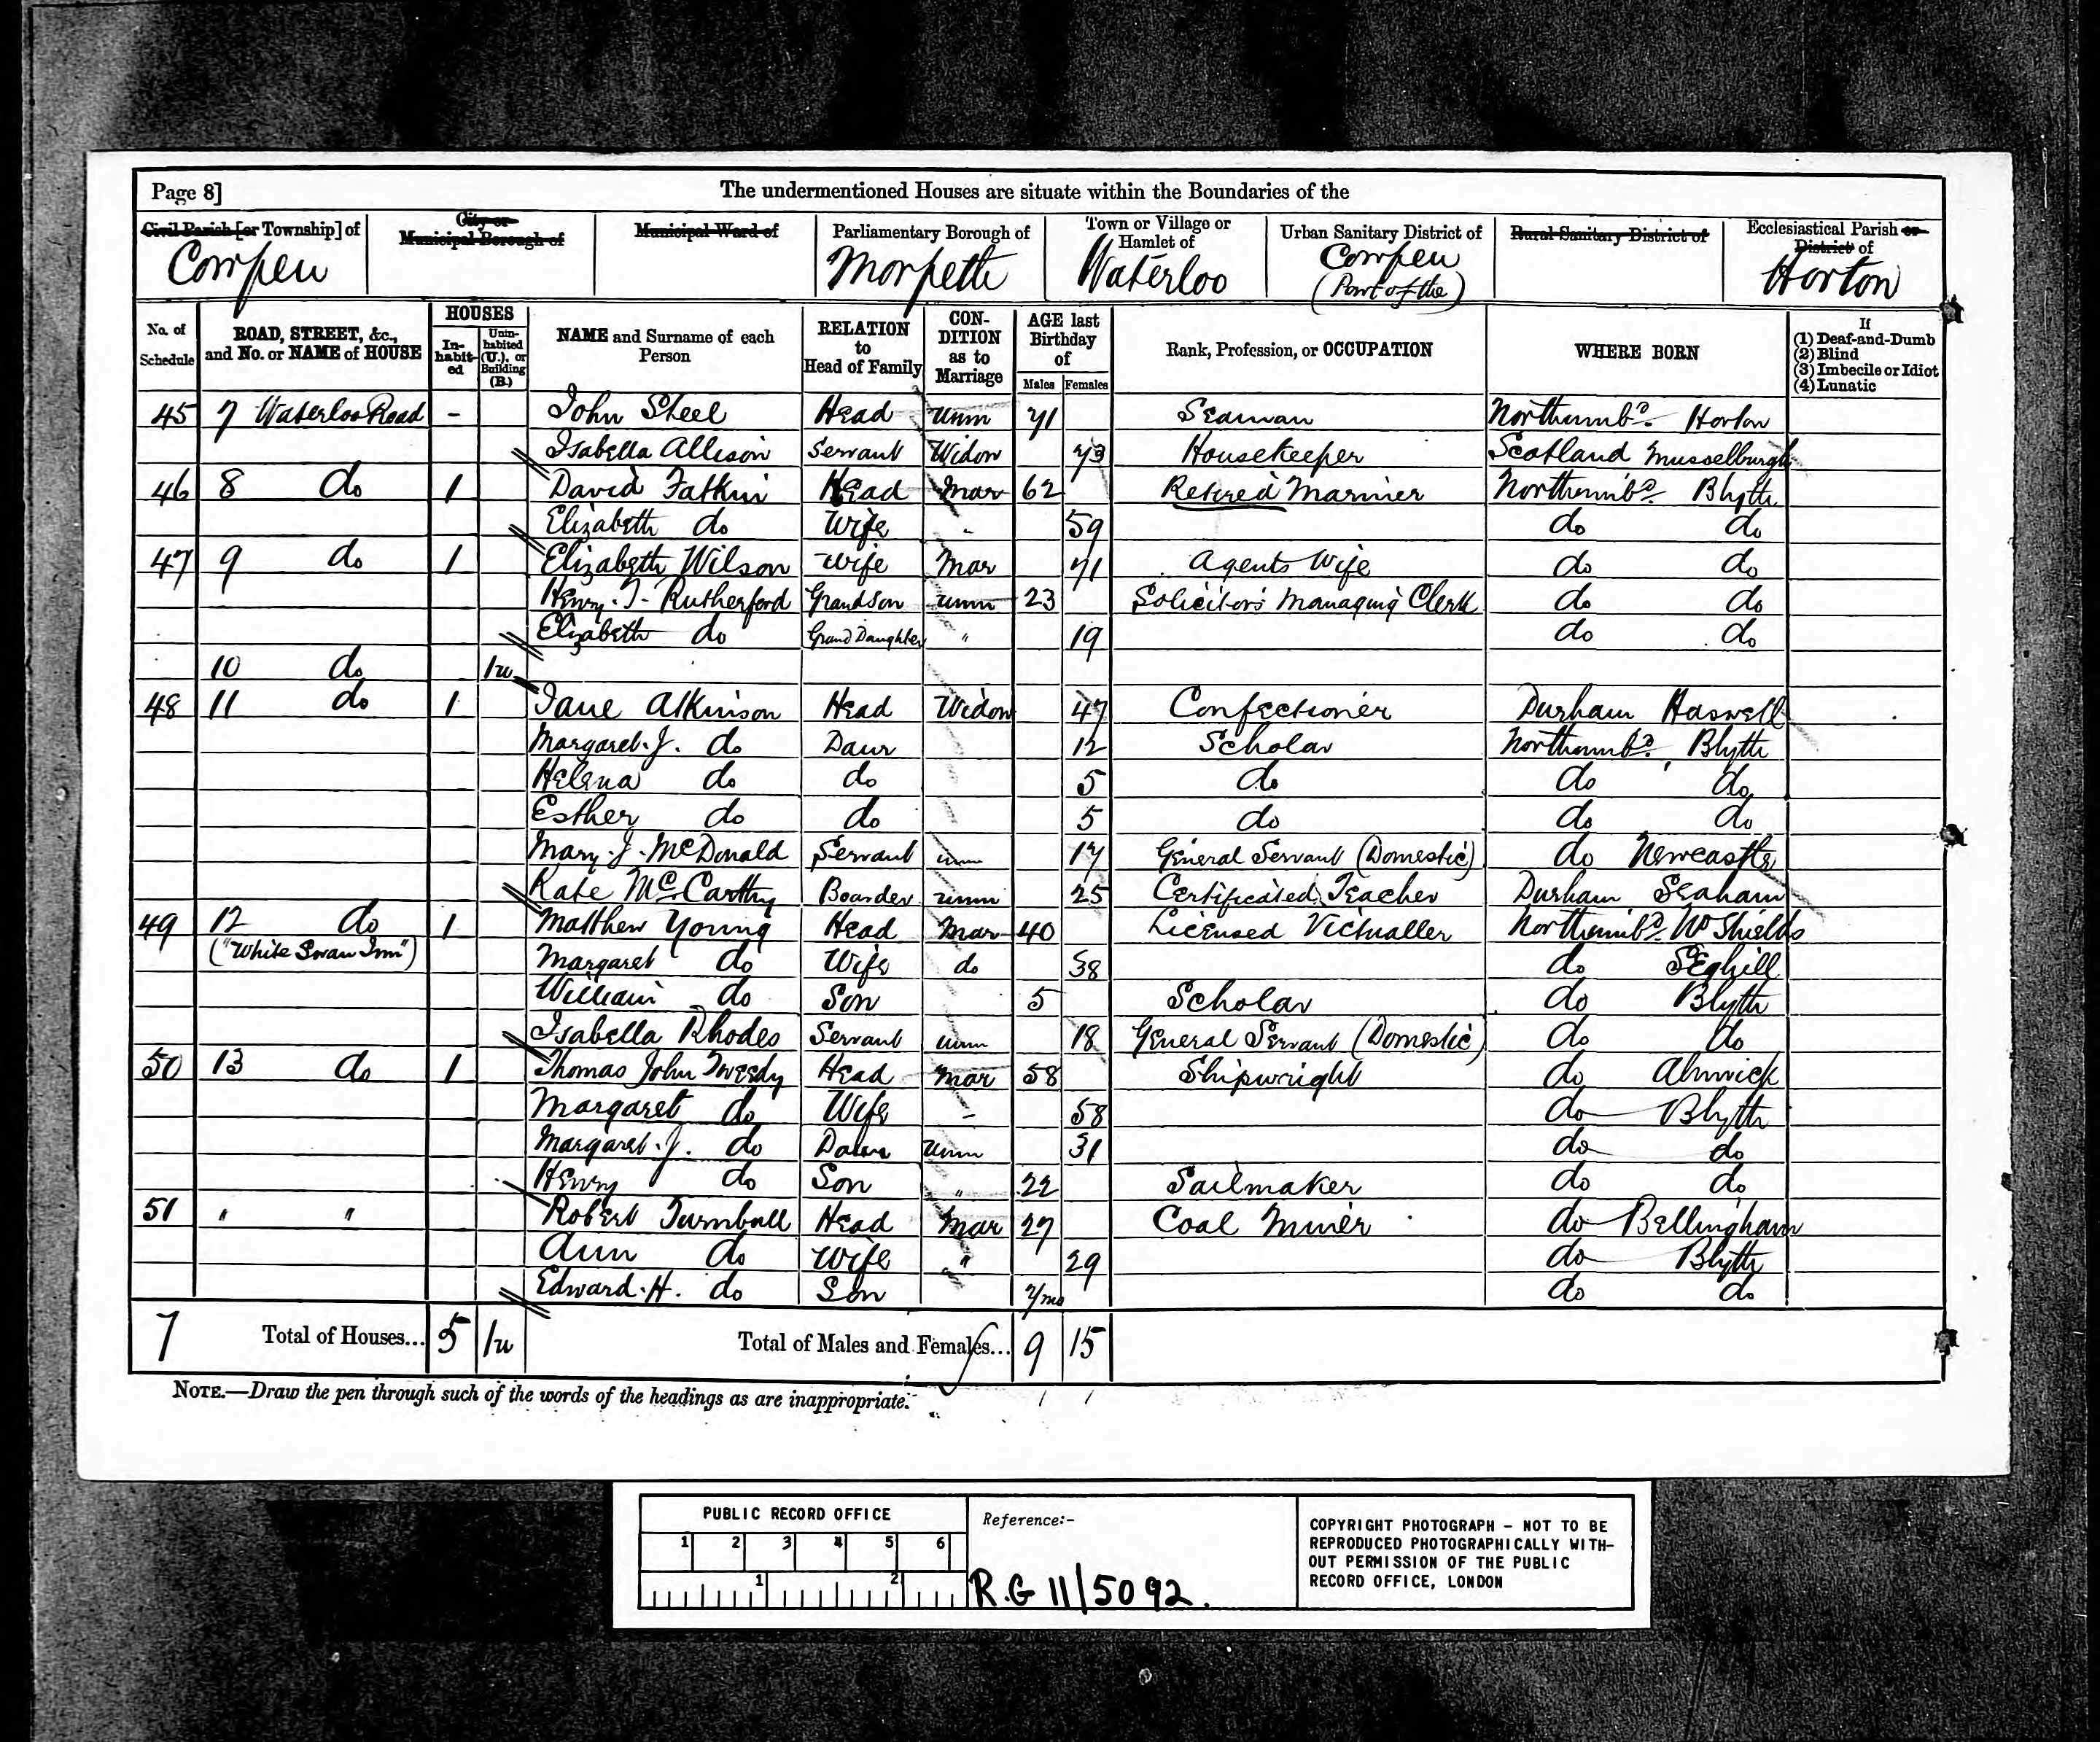 Page 8]
The undermentioned Houses are situate within the Boundaries of the
Civil Parish [or Township] of Cowpen
City or Municipal Borough of
Municipal Ward of
Parliamentary Borough of Morpeth
Town or Village or Hamlet of Waterloo
Urban Sanitary District of Cowpen (Part of the)
Rural Sanitary District of
Ecclesiastical Parish or District of Horton
No. of Schedule
ROAD, STREET, &c., and No. or NAME of HOUSE
HOUSES
In-habit-ed
Unin-habited (U.), or Building (B.)
NAME and Surname of each Person
RELATION to Head of Family
CON-DITION as to Marriage
AGE last Birthday of
Males Females
Rank, Profession, or OCCUPATION
WHERE BORN
If
(1) Deaf-and-Dumb
(2) Blind
(3) Imbecile or Idiot
(4) Lunatic
45 7 Waterloo Road - John Steel Head Unm 71 Seaman Northumbd. Horton
Isabella Allison Servant Widow 73 Housekeeper Scotland Musselburgh
46 8 do 1 David Fatkin Head Mar 62 Retired Mariner Northumbd. Blyth
Elizabeth do Wife - 59 do do
47 9 do 1 Elizabeth Wilson Wife Mar 71 Agents Wife do do
Henry. T. Rutherford Grandson Unm 23 Solicitors Managing Clerk do do
Elizabeth do Grand Daughter " 19 do do
10 do 1u
48 11 do 1 Jane Atkinson Head Widow 47 Confectioner Durham Haswell
Margaret. J. do Daur 12 Scholar Northumbd. Blyth
Helena do do 5 do do do
Esther do do 5 do do do
Mary. J. McDonald Servant unm 17 General Servant (Domestic) do Newcastle
Kate McCarthy Boarder unm 25 Certificated Teacher Durham Seaham
49 12 do 1 Matthew Young Head Mar 40 Licensed Victualler Northumbd. No Shields
("White Swan Inn") Margaret do Wife do 38 do Seghill
William do Son 5 Scholar do Blyth
Isabella Rhodes Servant unm 18 General Servant (Domestic) do do
50 13 do 1 Thomas John Tweedy Head Mar 58 Shipwright do Alnwick
Margaret do Wife - 58 do Blyth
Margaret. J. do Daur Unm 31 do do
Henry do Son " 22 Sailmaker do do
51 " " Robert Turnbull Head Mar 27 Coal Miner do Bellingham
Ann do Wife " 29 do Blyth
Edward. H. do Son 7/mo do do
7 Total of Houses... 5 1u Total of Males and Females... 9 15
NOTE.—Draw the pen through such of the words of the headings as are inappropriate.
PUBLIC RECORD OFFICE
1 2 3 4 5 6
1 2
Reference:-
R.G 11/5092.
COPYRIGHT PHOTOGRAPH - NOT TO BE
REPRODUCED PHOTOGRAPHICALLY WITH-
OUT PERMISSION OF THE PUBLIC
RECORD OFFICE, LONDON